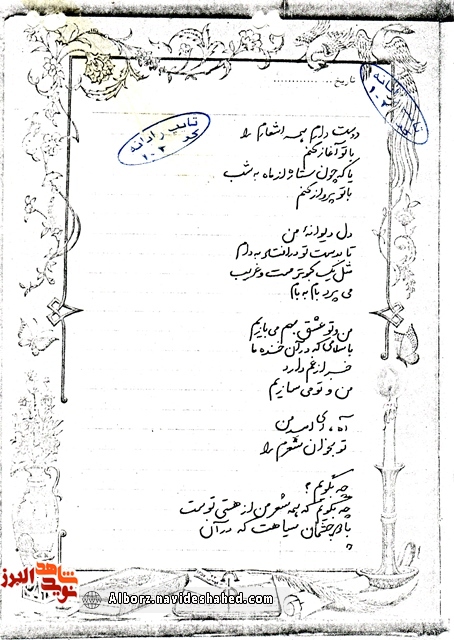 تاریخ ................
تایپ رایانه
کد ۱۰۲
تایپ رایانه
کد ۱۰۲
دوست دارم همه اشعارم را
با تو آغاز کنم
یا که چون ستاره از ماه به شب
با تو پرواز کنم
دل دیوانهٔ من
تا بدست تو در افتاد به دام
مثل یک کبوتر مست و غریب
می پرد بام به بام
من و تو عشق بهم می بازیم
با سلامی که در آن خنده ما
خبر از غم دارد
من و تو می سازیم
آه، ای امید من
تو بخوان شعرم را
چه بگویم؟
چه بگویم که همه شعر من از هستی توست
با دو چشمان سیاهت که در آن
شاهد
نوید
البرز
Alborz.navideshahed.com